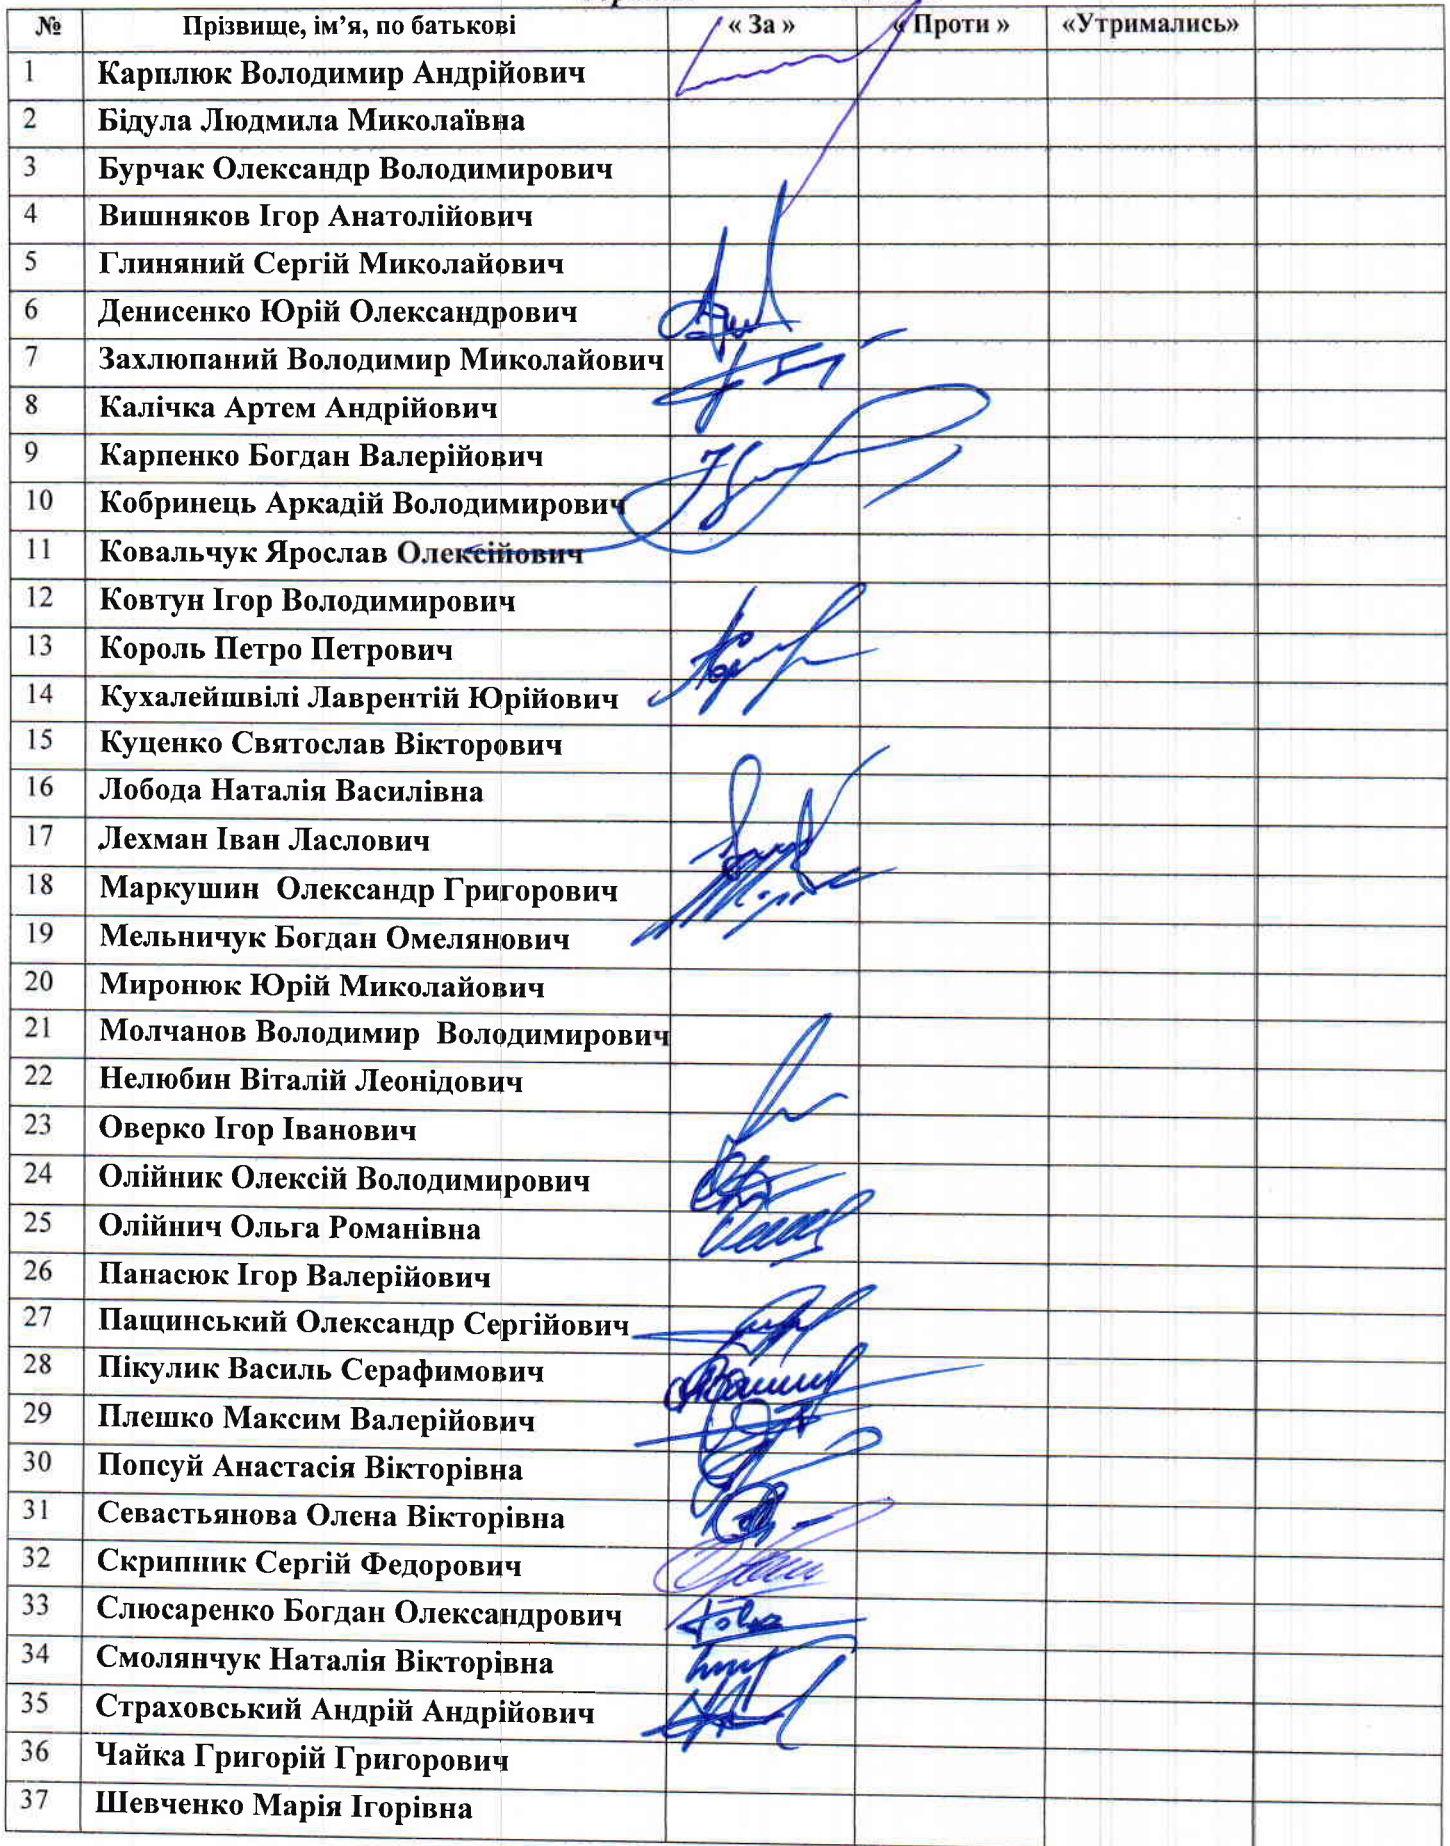 № Прізвище, ім’я, по батькові « За » « Проти » «Утримались»
1 Карплюк Володимир Андрійович
2 Бідула Людмила Миколаївна
3 Бурчак Олександр Володимирович
4 Вишняков Ігор Анатолійович
5 Глиняний Сергій Миколайович
6 Денисенко Юрій Олександрович
7 Захлюпаний Володимир Миколайович
8 Калічка Артем Андрійович
9 Карпенко Богдан Валерійович
10 Кобринець Аркадій Володимирович
11 Ковальчук Ярослав Олексійович
12 Ковтун Ігор Володимирович
13 Король Петро Петрович
14 Кухалейшвілі Лаврентій Юрійович
15 Куценко Святослав Вікторович
16 Лобода Наталія Василівна
17 Лехман Іван Ласлович
18 Маркушин Олександр Григорович
19 Мельничук Богдан Омелянович
20 Миронюк Юрій Миколайович
21 Молчанов Володимир Володимирович
22 Нелюбин Віталій Леонідович
23 Оверко Ігор Іванович
24 Олійник Олексій Володимирович
25 Олійнич Ольга Романівна
26 Панасюк Ігор Валерійович
27 Пащинський Олександр Сергійович
28 Пікулик Василь Серафимович
29 Плешко Максим Валерійович
30 Попсуй Анастасія Вікторівна
31 Севастьянова Олена Вікторівна
32 Скрипник Сергій Федорович
33 Слюсаренко Богдан Олександрович
34 Смолянчук Наталія Вікторівна
35 Страховський Андрій Андрійович
36 Чайка Григорій Григорович
37 Шевченко Марія Ігорівна